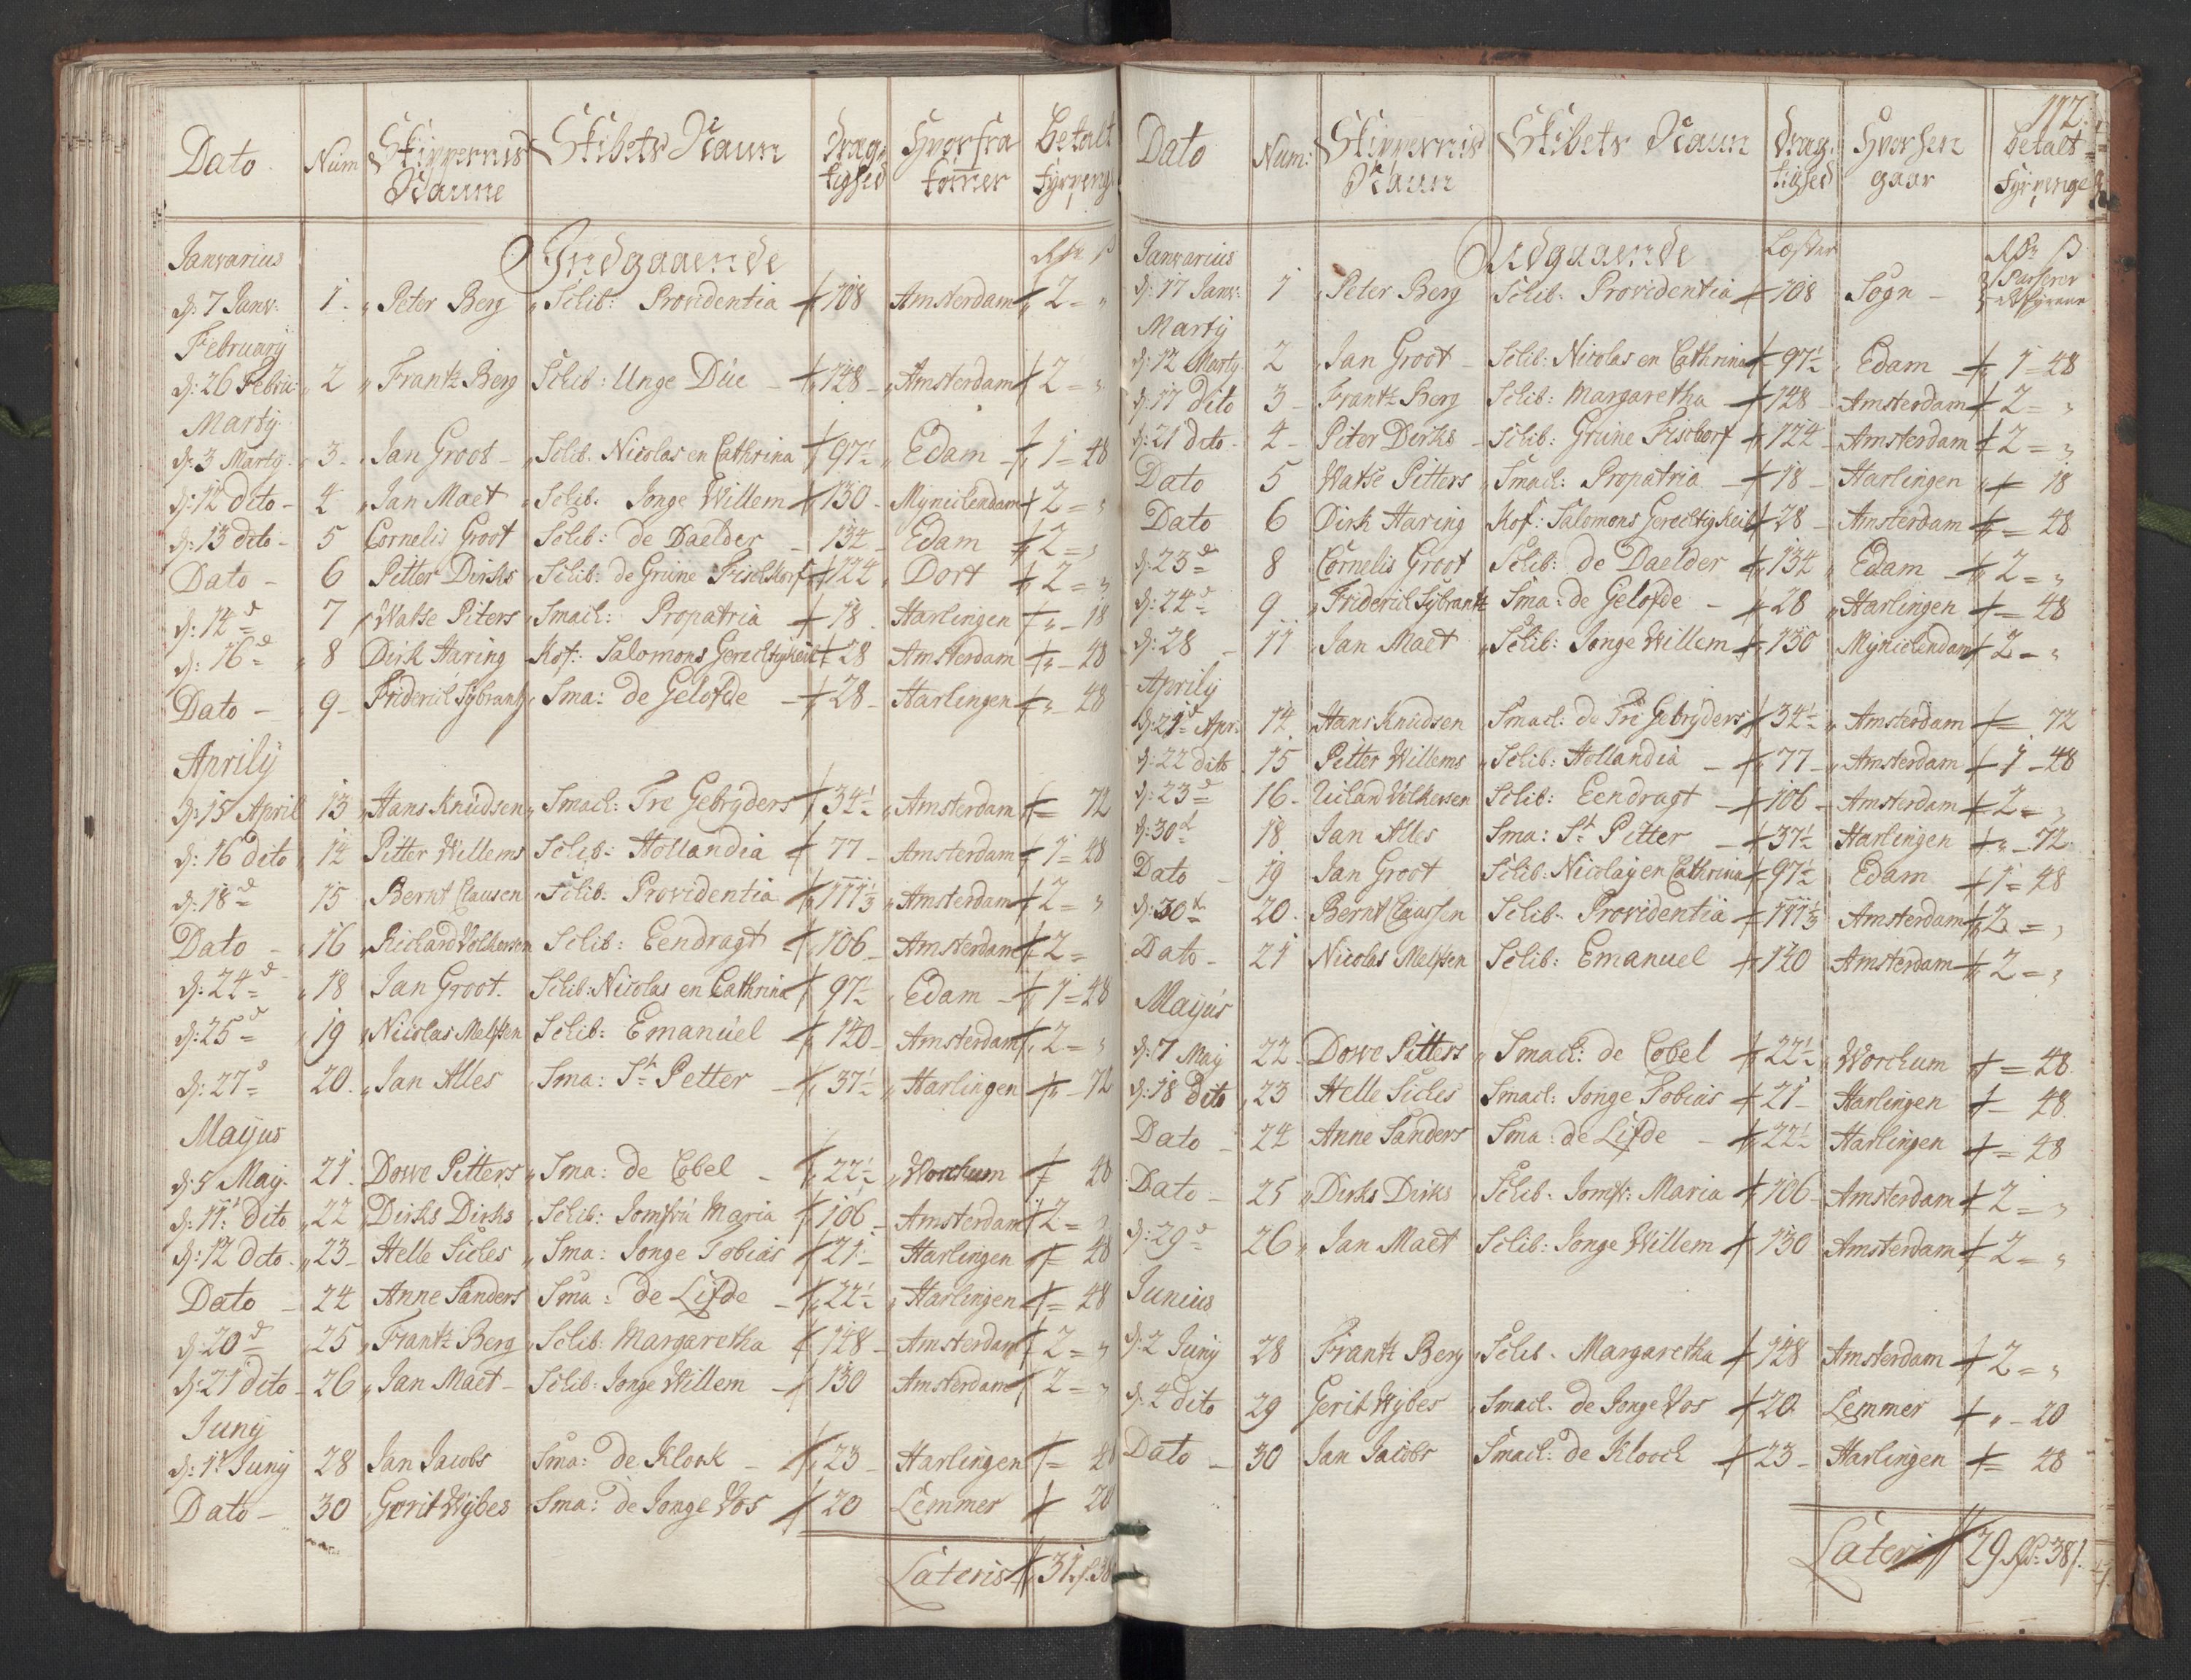 Dato. Num Skippernis Naune Skibets Naun Dragtighed Hvorfra kommer Betalt fyrpeng
Indgaaende
Janvarius
d: 7 Janv: 1. Peter Berg Schib: Providentia 108 Amsterdam 2 = "
February
d: 26 Febru: 2 Frantz Berg Schib: Unge Due - 148 - Amsterdam 2 = "
Martÿ.
d: 3 Martÿ. 3 - Jan Groot - Schib. Nicolas en Cathrina 97½ Edam - 1 = 48
d: 12 dito - 4 Jan Maet Schib. Jonge Willem 130 - Mÿnichendam 2 = "
d: 13 dito - 5 Cornelis Groot Schib: de Daelder - 134 - Edam 2 = "
Dato - 6 Pitter Dirks Schib: de Grüne Fischdorf 124 Dort 2 = "
d: 14d = 7 Watse Piters Smach: Propatria 18 - Harlingen " - 18
d: 16d = 8 Dirk Haring Kof: Salomons Gerechtigheid 28 Amsterdam " - 48
Dato - 9 - Friderich Sÿbrantz Sma: de Gelofde - 28 - Harlingen " - 48
Aprilÿ
d: 15 April 13 Hans Knudsen Smach: Tre Gebrÿders 34½ Amsterdam = 72
d: 16 dito 14 Pitter Willems Schib: Hollandia 77 - Amsterdam 1 = 48
d: 18d = 15 Bernt Clausen Schib: Providentia 111⅓ Amsterdam 2 = "
Dato - 16 Richard Volkersen Schib: Eendragt 106 - Amsterdam 2 =
d: 24d = 18 Jan Groot. Schib: Nicolas en Cathrina 97½ Edam - 1 = 48
d: 25d = 19 Nicolas Melssen Schib: Emanuel 140 - Amsterdam 2 = "
d: 27d 20. Jan Alles Sma: St Petter - 37½ Harlingen - 72
Maÿus
d: 5 Maÿ. 21. Dowe Pitters Sma: de Cobel - 22½ Worckum 48
d: 11: dito 22 Dirks Dirks Schib: Jomfru Maria 106 - Amsterdam 2 = "
d: 12 dito. 23 - Helle Sicles Sma: Jonge Tobias 21 - Harlingen = 48
Dato - 24 Anne Sanders Sma: de Lifde - 22½ Harlingen = 48
d: 20d = 25 Frantz Berg Schib: Margaretha 148 - Amsterdam 2 = "
d: 21 dito - 26 Jan Maet - Schib: Jonge Willem - 130 Amsterdam 2 = "
Junÿ
d: 1t Junÿ 28 Jan Jacobs Sma: de Klock - 23 - Harlingen = 48
Dato - 30 Gerit Wÿbes Sma: de Jonge Vos 20 Lemmer 20
Lateris 31 f 38
112.
Dato Num: Skippernis Naun Skibets Naun Dragtighed Hvorhen gaar betalt fyrpenge
Janvarius Udgaaende Læster Rdr ß
d: 17 Janv: 1 Peter Berg Schib. Providentia 108 Sogn -
Martÿ
d: 12 Martÿ 2 Jan Groot - Schib: Nicolas en Cathrina 97½ Edam - 1 = 48
d: 17 dito 3 - Frantz Berg Schib: Margaretha - 148 - Amsterdam 2 = "
d: 21 dito - 4 - Piter Dirks - Schib: Grüne Fischdorf 124 - Amsterdam 2 = "
Dato 5 Watse Pitters Smach: Propatria - 18 - Harlingen = 18
Dato 6 Dirk Haring Kof: Salomons Gerechtigkeid 28 - Amsterdam = 48
d: 23d = 8 Cornelis Groot Schib: de Daelder 134 Edam - 2 = "
d: 24d = 9 Friderich Sÿbrantz Sma: de Gelofde - 28 Harlingen = 48
d: 28 - 11 Jan Maet Schib: Jonge Willem 130 Mÿnichendam 2 = "
Aprilÿ
d: 21d Apr. 14 Hans Knudsen Smach: de Tre Gebrÿders 34½ Amsterdam = 72
d: 22 dito 15 Pitter Willems Schib: Hollandia - 77 - Amsterdam 1 - 48
d: 23d = 16 - Richard Volkersen Schib: Eendragt - 106 - Amsterdam 2 = "
d: 30d 18 Jan Alles Sma: St Pitter - 37½ Harlingen " - 72
Dato - 19 Jan Groot Schib: Nicolaÿ en Cathrina 97½ Edam 1 = 48
d: 30d 20. Bernt Claussen Schib. Providentia 111⅓ Amsterdam 2 = "
Dato - 21 Nicolas Melssen Schib: Emanuel 140 Amsterdam 2 = "
Maÿus
d: 7 Maÿ 22 Dowe Pitters Smach: de Cobel 22½ Worchum = 48.
d: 18 dito 23 Helle Sicles Smach: Jonge Tobias 21 - Harlingen - 48
Dato - 24 Anne Sanders Sma: de Lifde - 22½ Harlingen = 48
Dato - 25 Dirks Dirks Schib. Jomfr: Maria 106 - Amsterdam 2 = "
d: 29d 26 Jan Maet Schib: Jonge Willem 130 Amsterdam 2 = "
Junius
d: 2 Junÿ 28 Frantz Berg Schib. Margaretha 148 Amsterdam 2 = "
d: 4 dito 29 Gerit Wÿbes Smach. de Jonge Vos 20. Lemmer " - 20
Dato - 30 Jan Jacobs Smach: de Kloock 23 - Harlingen = 48
Lateris 29 Rdr 38 ß.